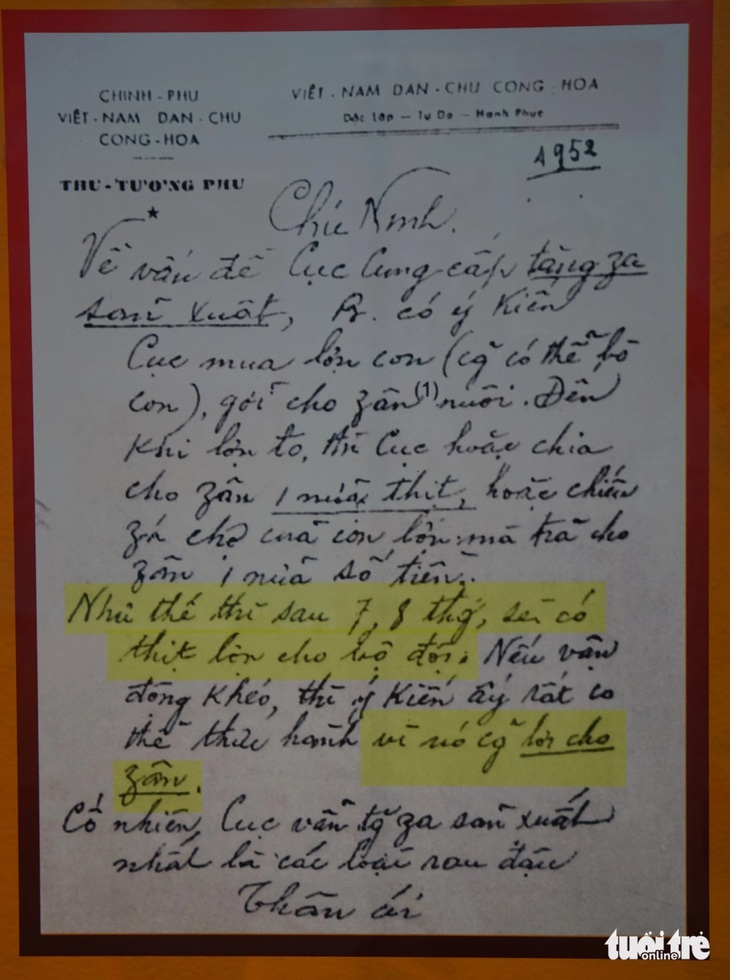 CHINH - PHU
VIỆT - NAM DAN - CHU
CONG - HOA
THU - TƯƠNG PHU
VIỆT - NAM DAN - CHU CONG HOA
Dôc lâp — Tư Do — Hanh Phuc
1952
Chú Ninh.
Về vấn đề Cục Cung cấp tăng za
sản xuất, B. có ý kiến
Cục mua lợn con (cg̃ có thể bò
con), gởi cho zân (1) nuôi. Đến
khi lợn to, thì Cục hoặc chia
cho zân 1 nửa thịt, hoặc chiếu
zá chợ của con lợn mà trả cho
zân 1 nửa số tiền.
Như thế thì sau 7, 8 thg, sẽ có
thịt lợn cho bộ đội. Nếu vận
động khéo, thì ý kiến ấy rất có
thể thực hành vì nó cg̃ lợi cho
zân.
Cố nhiên, Cục vẫn tg za sản xuất
nhất là các loại rau đậu
Thân ái
tuổi trẻ
online